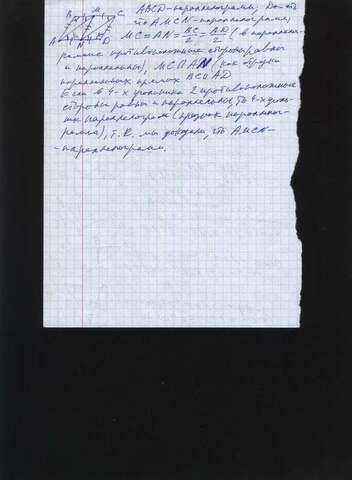 B M C
A N D
ABCD-параллелограмм, Док-ть
что AMCN-параллелограмм,
MC=AN=BC/2=AD/2 (в параллелог-
рамме противоположные стороны равны
и параллельны), MC||AN (как отрезки
параллельных прямых BC||AD
Если в 4-х угольнике 2 противоположные
стороны равны и параллельны, то 4-х уголь-
ник параллелограм (признак параллелог-
рамма), т.к. мы доказали, что AMCN-
-параллелограмм.